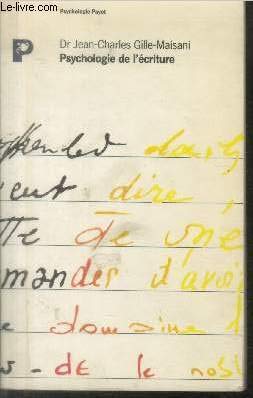 © Le-livre.com
Psychologie Payot
P
Dr Jean-Charles Gille-Maisani
Psychologie de l'écriture
dire,
de une
mandes d'avoir
domaine
- DE le nobl